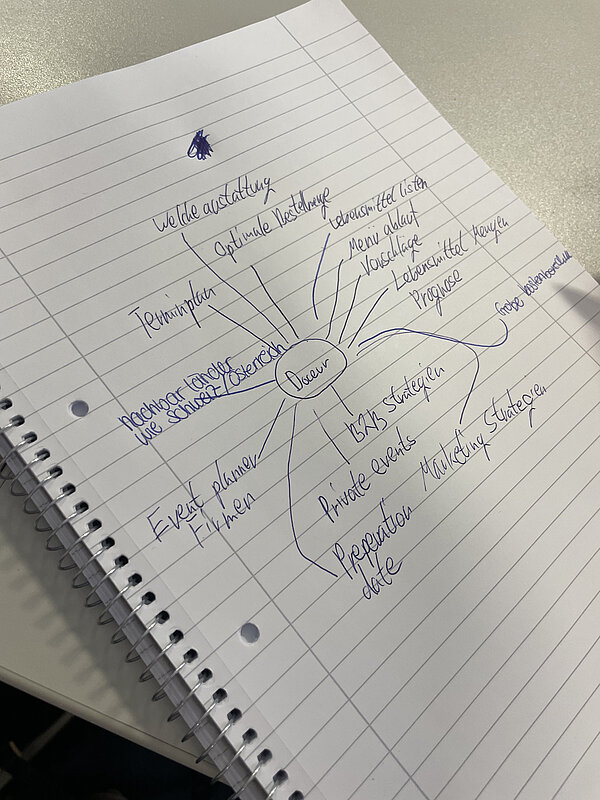 Welche austattung
Optimale Bestellmenge
Lebensmittel listen
Menü ablauf
Vorschläge
Lebensmittel Mengen
Prognose
Terminplan
Grobe
Nachbar Länder
wie Schweiz/Österreich
B2B Strategien
Marketing Strategien
Private events
Event planner
Firmen
Preperation
date